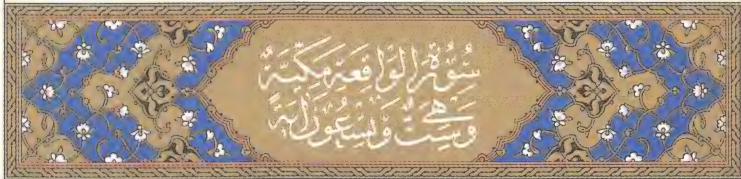 سُوْرَةُ الْوَاقِعَةِ مَكِّيَّةٌ
وَهِيَ سِتٌّ وَتِسْعُوْنَ اٰيَةً